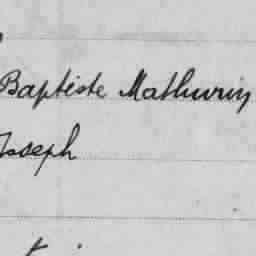 Baptiste Mathurin
Joseph